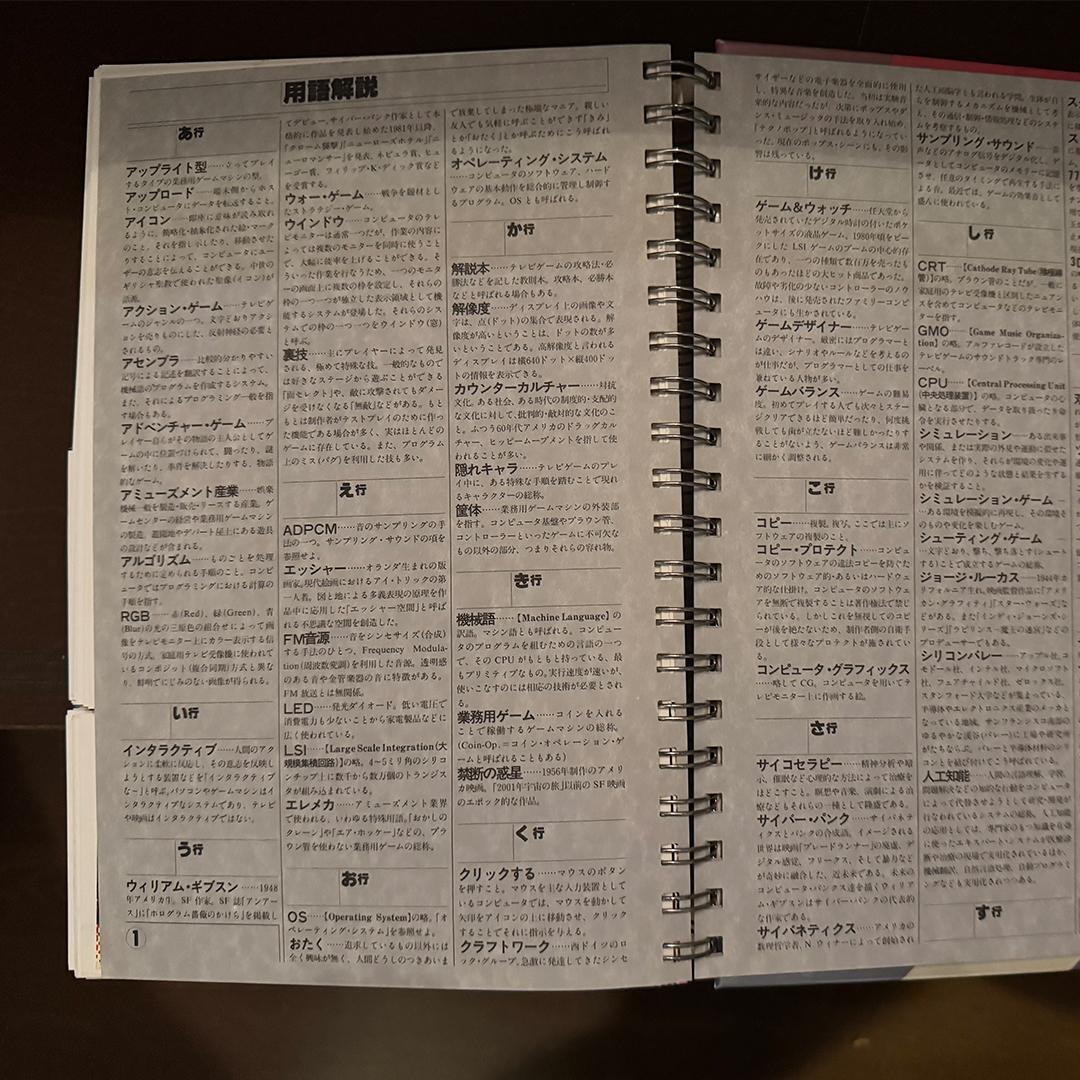 用語解説
あ行
アップライト型……立ってプレイ
するタイプの業務用ゲームマシンの型。
アップロード……端末側からホス
ト・コンピュータにデータを転送すること。
アイコン……即座に意味が読み取れ
るように、簡略化・抽象化された絵・マーク
のこと。それを指し示したり、移動させた
りすることによって、コンピュータにユー
ザーの意志を伝えることができる。中世の
ギリシャ聖教で使われた聖像(イコン)が
語源。
アクション・ゲーム……テレビゲ
ームのジャンルの一つ。文字どおりアクシ
ョンを売りものにした、反射神経の必要と
されるもの。
アセンブラ……比較的分かりやすい
記号による記述を翻訳することによって、
機械語のプログラムを作成するシステム。
また、それによるプログラミング一般を指
す場合もある。
アドベンチャー・ゲーム……プ
レイヤー自らがその物語の主人公としてゲ
ームの中に位置づけられて、闘ったり、謎
を解いたり、事件を解決したりする、物語
的なゲーム。
アミューズメント産業……娯楽
機械一般を製造・販売・リースする産業。ゲ
ームセンターの経営や業務用ゲームマシン
の製造、遊園地やデパート屋上にある遊具
の設計などが含まれる。
アルゴリズム……ものごとを処理
するために定められる手順のこと。コンピ
ュータではプログラミングにおける計算の
手順を指す。
RGB……赤(Red)、緑(Green)、青
(Blue)の光の三原色の組合せによって画
像をテレビモニター上にカラー表示する信
号の方式。家庭用テレビ受像機に使われて
いるコンポジット(複合同期)方式と異な
り、鮮明でにじみのない画像が得られる。
い行
インタラクティブ……人間のアク
ションに柔軟に反応し、その意志を反映し
ようとする装置などを「インタラクティブ
な〜」と呼ぶ。パソコンやゲームマシンはイ
ンタラクティブなシステムであり、テレビ
や映画はインタラクティブではない。
う行
ウィリアム・ギブスン……1948
年アメリカ生。SF 作家。SF 誌『アンアー
ス』に『ホログラム薔薇のかけら』を掲載し
1
てデビュー。サイバー・パンク作家として本
格的に作品を発表し始めた1981年以降、
『クローム襲撃』『ニューローズホテル』『ニ
ューロマンサー』を発表、ネビュラ賞、ヒュ
ーゴー賞、フィリップ・K・ディック賞など
を受賞する。
ウォー・ゲーム……戦争を題材とし
たストラテジー・ゲーム。
ウインドウ……コンピュータのテレ
ビモニターは通常一つだが、作業の内容に
よっては複数のモニターを同時に使うこと
で、大幅に能率を上げることができる。そ
ういった作業を行なうため、一つのモニタ
ーの画面上に複数の枠を設定し、それらの
枠の一つ一つが独立した表示領域として機
能するシステムが登場した。それらのシス
テムでの枠の一つ一つをウインドウ(窓)
と呼ぶ。
裏技……主にプレイヤーによって発見
される、極めて特殊な技。一般的なもので
は好きなステージから遊ぶことができる
「面セレクト」や、敵に攻撃されてもダメー
ジを受けなくなる「無敵」などがある。もと
もとは制作者がテストプレイのために作っ
た機能である場合が多く、実はほとんどの
ゲームに存在している。また、プログラム
上のミス(バグ)を利用した技も多い。
え行
ADPCM……音のサンプリングの手
法の一つ。サンプリング・サウンドの項を
参照せよ。
エッシャー……オランダ生まれの版
画家。現代絵画におけるアイ・トリックの第
一人者。図と地による多義表現の原理を作
品中に応用した「エッシャー空間」と呼ば
れる不思議な空間を創造した。
FM音源……音をシンセサイズ(合成)
する手法のひとつ、Frequency Modula-
tion(周波数変調)を利用した音源。透明感
のある音や金管楽器の音に特徴がある。
FM 放送とは無関係。
LED……発光ダイオード。低い電圧で
消費電力も少ないことから家電製品などに
広く使われている。
LSI……【Large Scale Integration(大
規模集積回路)】の略。4〜5ミリ角のシリコ
ンチップ上に数千から数万個のトランジス
タが組み込まれている。
エレメカ……アミューズメント業界
で使われる、いわゆる特殊用語。「おかしの
クレーン」や「エア・ホッケー」などの、ブラ
ウン管を使わない業務用ゲームの総称。
お行
OS……【Operating System】の略。「オ
ペレーティング・システム」を参照せよ。
おたく……追求しているもの以外には
全く興味が無く、人間どうしのつきあいま
で放棄してしまった極端なマニア。親しい
友人でも気軽に呼ぶことができず「きみ」
とか「おたく」とか呼ぶためにこう呼ばれ
るようになった。
オペレーティング・システム
……コンピュータのソフトウェア、ハード
ウェアの基本動作を総合的に管理し制御す
るプログラム。OS とも呼ばれる。
か行
解説本……テレビゲームの攻略法・必
勝法などを記した教則本。攻略本、必勝本
などと呼ばれる場合もある。
解像度……ディスプレイ上の画像や文
字は、点(ドット)の集合で表現される。解
像度が高いということは、ドットの数が多
いということである。高解像度と言われる
ディスプレイは横640ドット×縦400ドッ
トの情報を表示できる。
カウンターカルチャー……対抗
文化。ある社会、ある時代の制度的・支配的
な文化に対して、批判的・敵対的な文化のこ
と。ふつう60年代アメリカのドラッグカル
チャー、ヒッピームーブメントを指して使
われることが多い。
隠れキャラ……テレビゲームのプレ
イ中に、ある特殊な手順を踏むことで現れ
るキャラクターの総称。
筐体……業務用ゲームマシンの外装部
を指す。コンピュータ基盤やブラウン管、
コントローラーといったゲームに不可欠な
もの以外の部分、つまりそれらの容れ物。
き行
機械語……【Machine Language】の
訳語。マシン語とも呼ばれる。コンピュー
タのプログラムを組むための言語の一つ
で、その CPU がもともと持っている、最
もプリミティブなもの。実行速度が速いが、
使いこなすのには相応の技術が必要とされ
る。
業務用ゲーム……コインを入れる
ことで稼働するゲームマシンの総称。
(Coin-Op.＝コイン・オペレーション・ゲ
ームと呼ばれることもある)
禁断の惑星……1956年制作のアメリ
カ映画。『2001年宇宙の旅』以前の SF 映画
のエポック的な作品。
く行
クリックする……マウスのボタン
を押すこと。マウスを主な入力装置として
いるコンピュータでは、マウスを動かして
矢印をアイコンの上に移動させ、クリック
することでそれに指示を与える。
クラフトワーク……西ドイツのロ
ック・グループ。急激に発達してきたシンセ
サイザーなどの電子楽器を全面的に使用
し、特異な音楽を創造した。当初は実験音
楽的な内容だったが、次第にポップスやダ
ンス・ミュージックの手法を取り入れ始め、
「テクノポップ」と呼ばれるようになってい
った。現在のポップス・シーンにも、その影
響は残っている。
け行
ゲーム&ウォッチ……任天堂から
発売されていたデジタル時計の付いたポケ
ットサイズの液晶ゲーム。1980年頃をピー
クにした LSI ゲームのブームの中心的存
在であり、一つの種類で数百万を売ったも
のもあったほどの大ヒット商品であった。
故障や劣化の少ないコントローラーのノウ
ハウは、後に発売されたファミリーコンピ
ュータにも生かされている。
ゲームデザイナー……テレビゲー
ムのデザイナー。厳密にはプログラマーと
は違い、シナリオやルールなどを考えるの
が仕事だが、プログラマーとしての仕事を
兼ねている人物が多い。
ゲームバランス……ゲームの難易
度。初めてプレイする人でも次々とステー
ジクリアできるほど簡単だったり、何度挑
戦しても歯が立たないほど難しかったりす
ることがないよう、ゲームバランスは非常
に細かく調整される。
こ行
コピー……複製、複写。ここでは主にソ
フトウェアの複製のこと。
コピー・プロテクト……コンピュ
ータのソフトウェアの違法コピーを防ぐた
めのソフトウェア的・あるいはハードウェ
ア的な仕掛け。コンピュータのソフトウェ
アを無断で複製することは著作権法で禁じ
られている。しかしこれを無視してのコピ
ーが後を絶たないため、制作者側の自衛手
段として様々なプロテクトが施されてい
る。
コンピュータ・グラフィックス
……略して CG。コンピュータを用いてテ
レビモニター上に作画する絵。
さ行
サイコセラピー……精神分析や暗
示、催眠など心理的な方法によって治療を
ほどこすこと。瞑想や音楽、演劇による治
療などもそれらの一種として隆盛である。
サイバー・パンク……サイバネテ
ィクスとパンクの合成語。イメージされる
世界は映画『ブレードランナー』の廃虚、デ
ジタル感覚、フリークス、そして暴力など
が奇妙に融合した、近未来である。未来の
コンピュータ・パンクス達を描くウィリア
ム・ギブスンはサイバー・パンクの代表的
な作家である。
サイバネティクス……アメリカの
数理哲学者、N. ウィナーによって創始され
た人工頭脳学とも言われる学問。生体が自
らを制御するメカニズムを機械として考
え、その通信・制御・情報処理などのシステ
ムを考察するもの。
サンプリング・サウンド……楽
音などのアナログ信号をデジタル化し、デ
ータとしてコンピュータのメモリーに記憶
させ、任意のタイミングで再生する手法に
よる音。最近では、ゲームの効果音として
盛んに使われている。
し行
CRT……【Cathode Ray Tube(陰極線
管)】の略。ブラウン管のことだが、一般に
家庭用のテレビ受像機と区別したニュアン
スを含めてコンピュータなどのテレビモニ
ターを指す。
GMO……【Game Music Organiza-
tion】の略。アルファレコードが設立した
テレビゲームのサウンドトラック専門のレ
ーベル。
CPU……【Central Processing Unit
(中央処理装置)】の略。コンピュータの心
臓となる部分で、データを取り扱ったり命
令を実行させたりする。
シミュレーション……ある出来事
や関係、または実際の外見や運動に似せた
システムを作り、それらが環境の変化や運
用に伴ってどのような状態と結果を生ずる
かを検証すること。
シミュレーション・ゲーム……
…ある環境を模擬的に再現し、その環境そ
のものや変化を楽しむゲーム。
シューティング・ゲーム……
…文字どおり、撃ち、撃ち落とす(シュート
する)ことで成立するゲームの総称。
ジョージ・ルーカス……1944年カ
リフォルニア生れ。映画監督作品に『アメリ
カン・グラフィティ』『スター・ウォーズ』な
どがある。また『インディ・ジョーンズ・シリ
ーズ』『ラビリンス―魔王の迷宮』などの
プロデューサーでもある。
シリコンバレー……アップル社、コ
モドール社、インテル社、マイクロソフト
社、フェアチャイルド社、ゼロックス社、
スタンフォード大学などが集まっている、
半導体やエレクトロニクス産業のメッカと
なっている地域。サンフランシスコ南部の
ゆるやかな渓谷(バレー)に工場や研究所
がたちならぶ。バレーと半導体材料のシリ
コンとを結び付けてこう呼ばれている。
人工知能……人間の言語理解、学習、
問題解決などの知的な行動をコンピュータ
によって代替させようとして研究・開発が
行なわれているシステムの総称。人工知能
の応用としては、専門家のもつ知識を有効
に使ったエキスパート・システムが医療診
断や治療の現場で実用化されているほか、
機械翻訳、自然言語処理、自動プログラミ
ングなども実用化されつつある。
す行